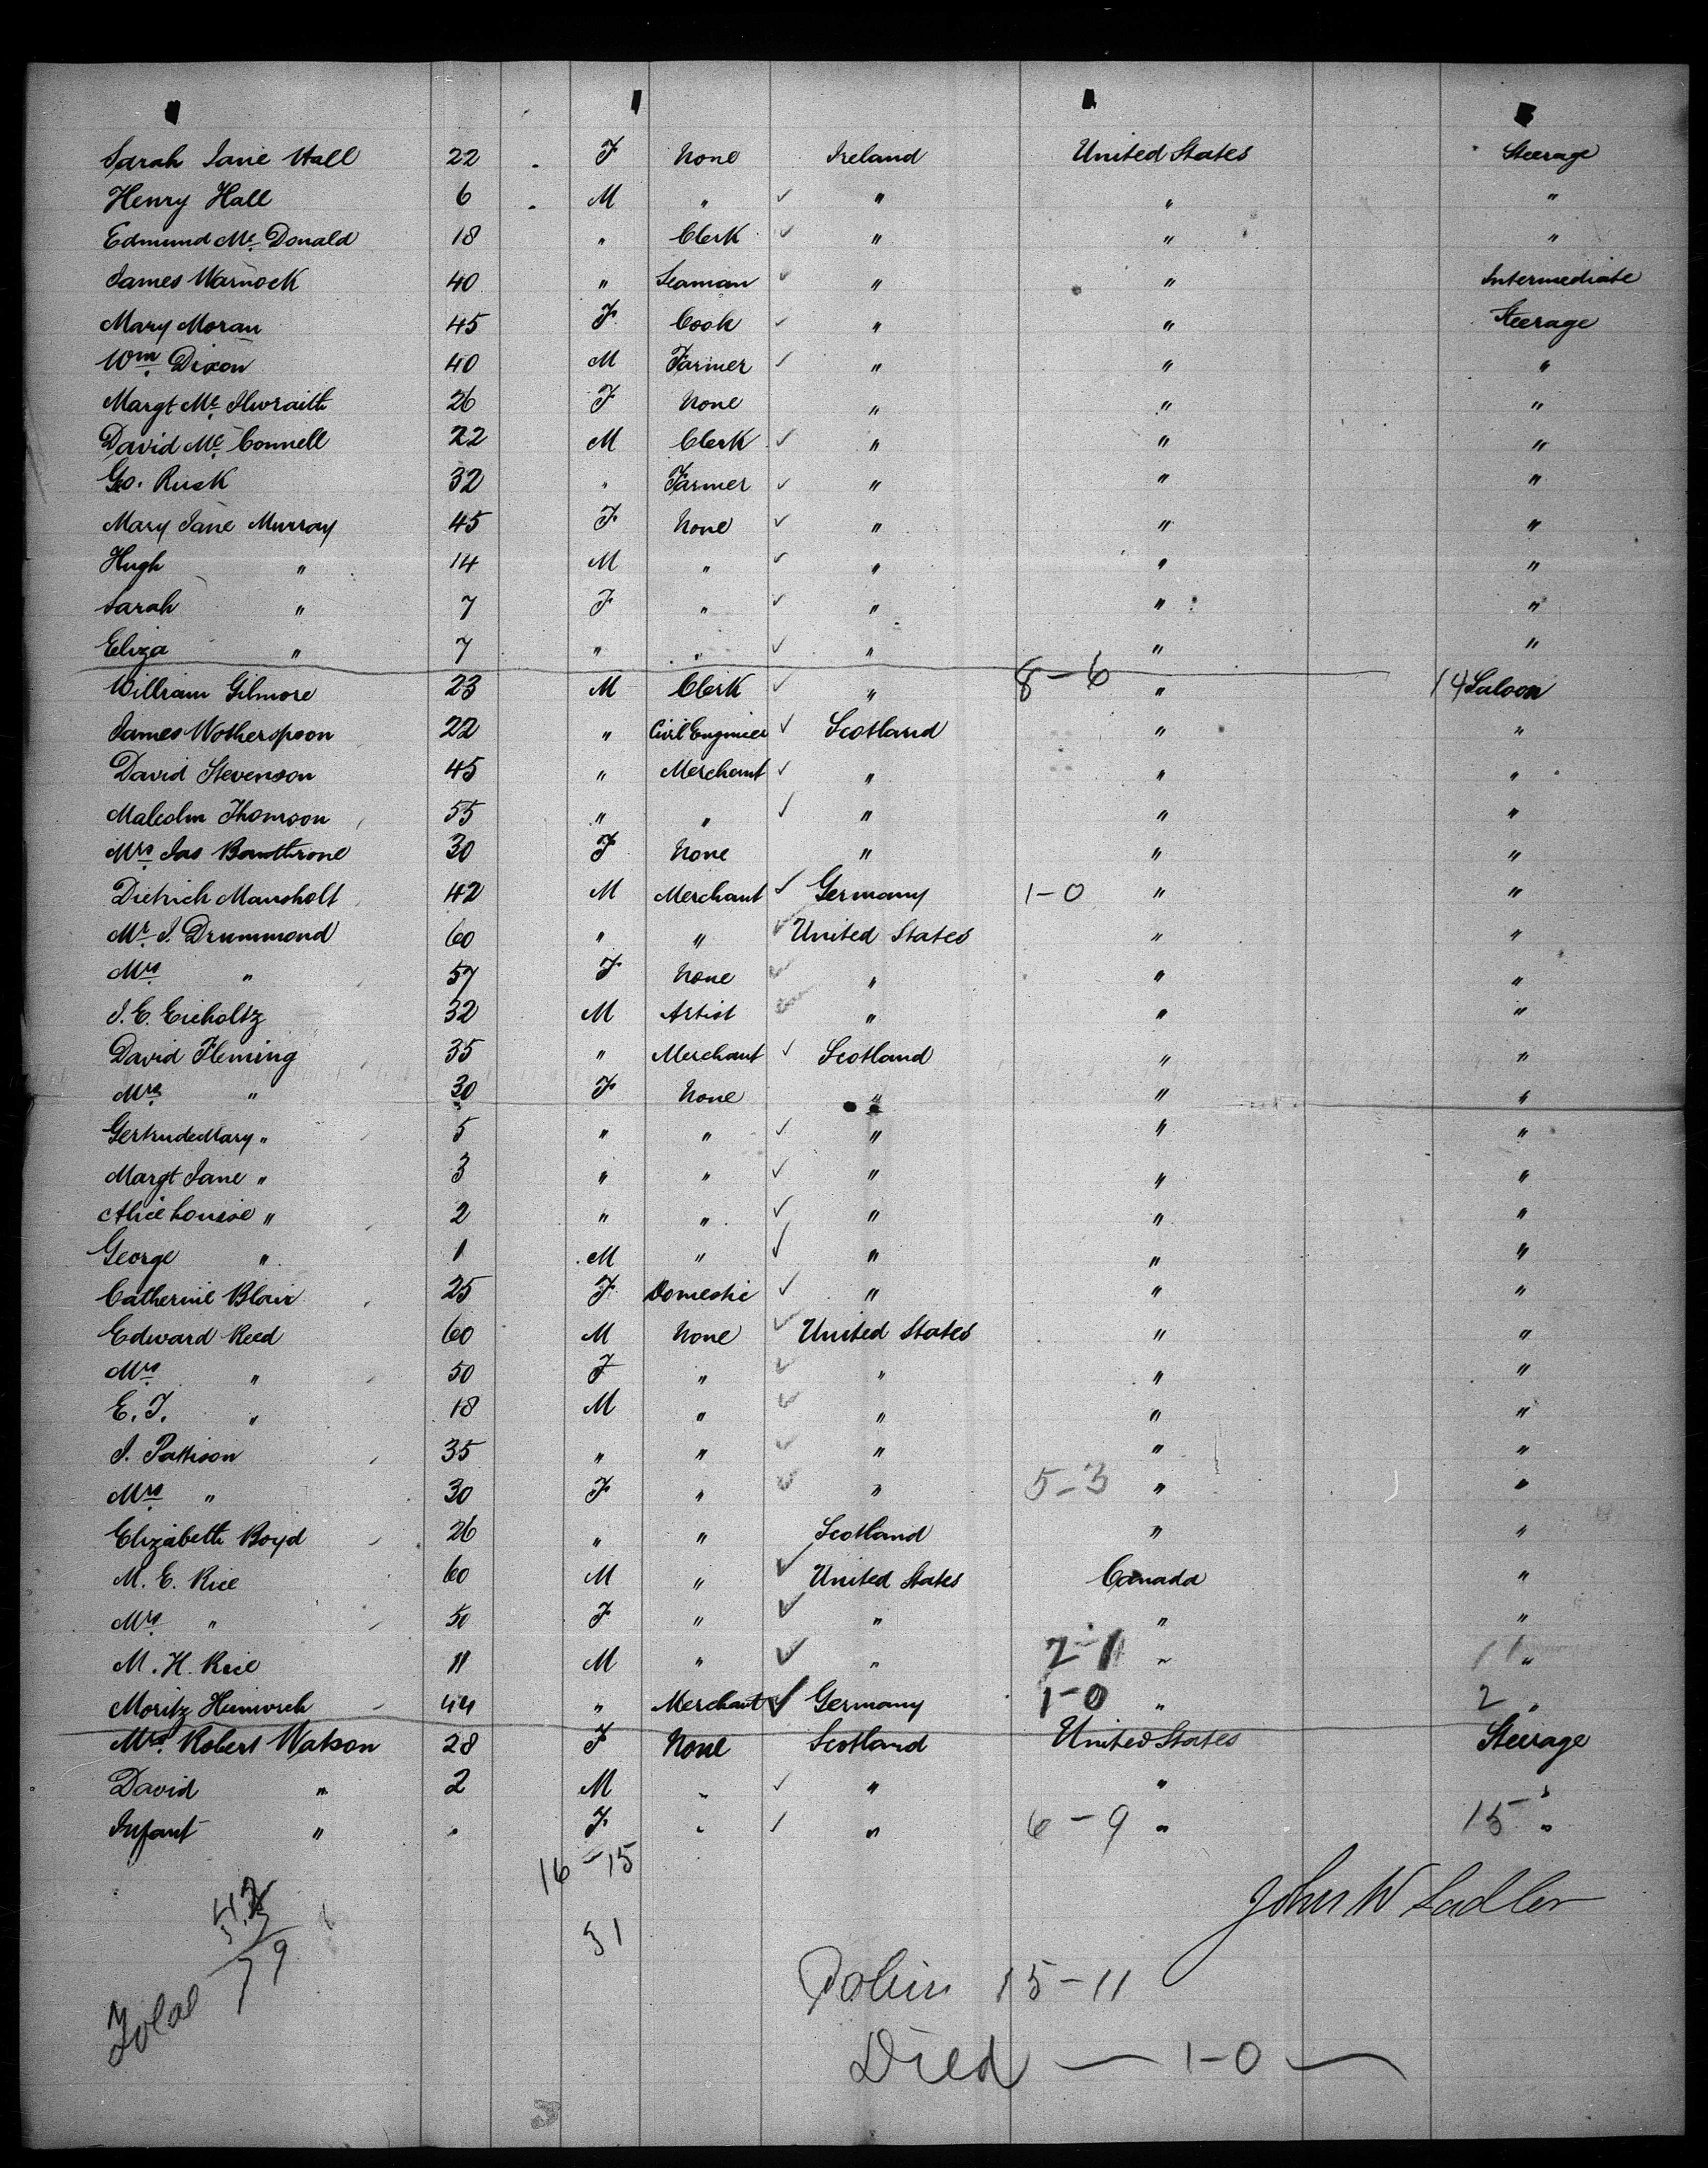 Sarah Jane Hall 22 F None Ireland United States Steerage
Henry Hall 6 M " " " "
Edmund Mc Donald 18 " Clerk " " "
James Warnock 40 " Seaman " " Intermediate
Mary Moran 45 F Cook " " Steerage
Wm Dixon 40 M Farmer " " "
Margt Mc Ilwraith 26 F None " " "
David Mc Connell 22 M Clerk " " "
Geo. Rusk 32 " Farmer " " "
Mary Jane Murray 45 F None " " "
Hugh " 14 M " " " "
Sarah " 7 F " " " "
Eliza " 7 " " " " "
William Gilmore 23 M Clerk " 8-6 " 14 Saloon
James Wotherspoon 22 " Civil Engineer Scotland " "
David Stevenson 45 " Merchant " " "
Malcolm Thomson 55 " " " " "
Mrs Jas Bawthrone 30 F None " " "
Dietrich Mansholt 42 M Merchant Germany 1-0 " "
Mr J. Drummond 60 " " United States " "
Mrs " 57 F None " " "
J. E. Eicholtz 32 M Artist " " "
David Fleming 35 " Merchant Scotland " "
Mrs " 30 F None " " "
Gertrude Mary " 5 " " " " "
Margt Jane " 3 " " " " "
Alice Louise " 2 " " " " "
George " 1 M " " " "
Catherine Blair 25 F Domestic " " "
Edward Reed 60 M None United States " "
Mrs " 50 F " " " "
E. J. " 18 M " " " "
J. Pattison 35 " " " " "
Mrs " 30 F " " 5-3 " "
Elizabeth Boyd 26 " " Scotland " "
M. E. Rice 60 M " United States Canada "
Mrs " 50 F " " " "
M. H. Rice 11 M " " 2-1 " "
Moritz Heinrich 44 " Merchant Germany 1-0 " 2 "
Mrs Robert Watson 28 F None Scotland United States Steerage
David " 2 M " " " "
Infant " " F " " 6-9 " 15 "
16-15
John W Sadler
31
Total 79
15-11
Died — 1-0 —